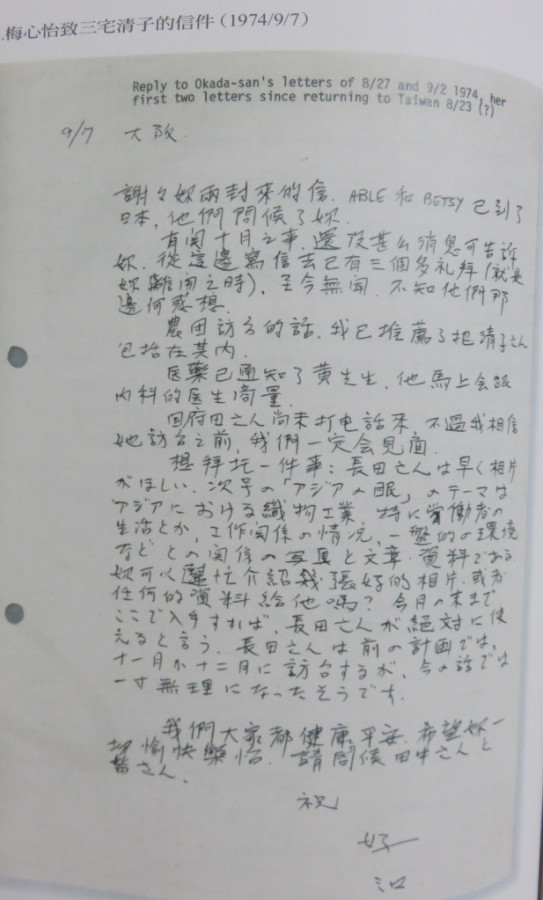 .梅心怡致三宅清子的信件（1974/9/7）
Reply to Okada-san's letters of 8/27 and 9/2 1974, her
first two letters since returning to Taiwan 8/23 (?)
9/7 大阪
謝々妳兩封來的信. ABLE 和 BETSY 已到了
日本, 他們問候了妳.
有関十月之事, 還沒甚么消息可告訴
妳. 從這邊寫信去已有三個多礼拜(就是
妳離開之時), 至今無聞. 不知他們那
邊何感想.
農団訪台的話. 我已推薦了把清子さん
包括在其内.
医藥已通知了黄先生, 他馬上会跟
内科的医生商量.
国府田さん尚未打电話來, 不過我相信
她訪台之前, 我們一定会見面.
想拜托一件事: 長田さんは早く相片
がほしい. 次号の「アジアの眼」のテーマは
アジアにおける織物工業, 特に労働者の
生活とか, 工作関係の情況, 一般的の環境
などとの関係の写真と文章·資料である.
妳可以選忙介紹幾張好的相片, 或者
任何的資料給他嗎? 今月の末まで
ここで入手すれば, 長田さんが絶対に使
えると言う. 長田さんは前の計画では,
十一月か十二月に訪台するが, 今の話では
一寸無理になったそうです.
我們大家都健康, 平安. 希望妳一
切愉快樂怡. 請問候田中さんと
皆さん.
祝
好